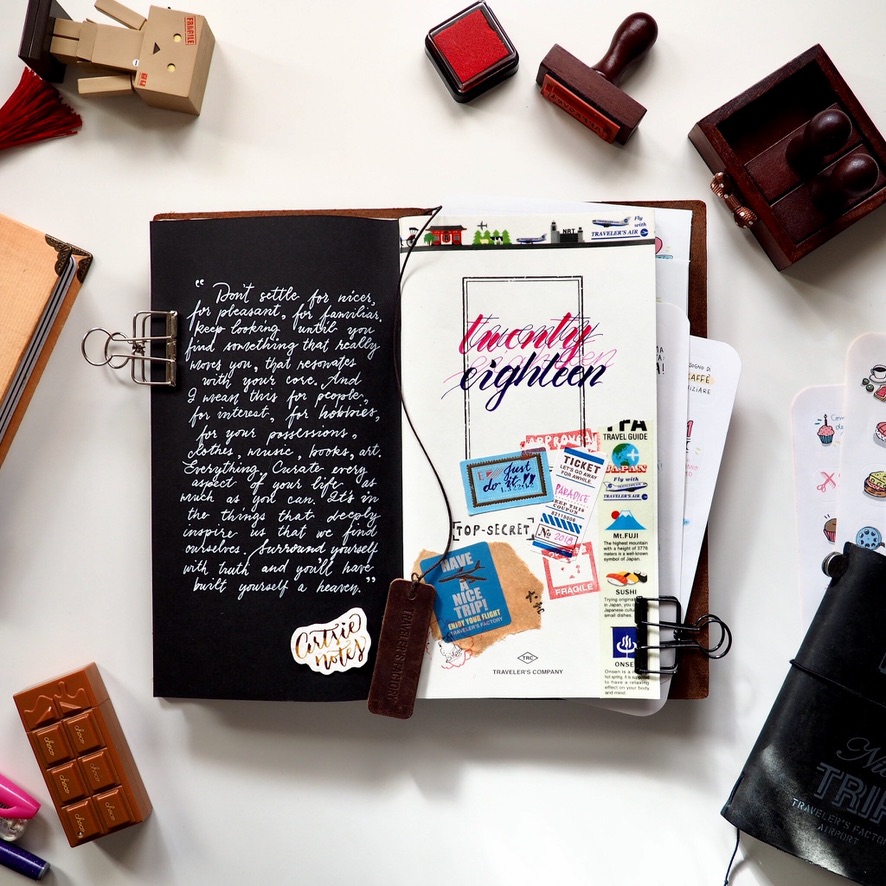 FRAGILE
" Don't settle for nicer,
for pleasant, for familiar,
keep looking until you
find something that really
moves you, that resonates
with your core. And
I mean this for people,
for interest, for hobbies,
for your possessions,
clothes, music, books, art.
Everything. Curate every
aspect of your life as
much as you can. It's in
the things that deeply
inspire us that we find
ourselves. Surround yourself
with truth and you'll have
built yourself a heaven."
Artsie
notes
NRT
Fly
with
TRAVELER'S AIR
twenty
eighteen
APPROVED
Just
do it!!
TICKET
LET'S GO AWAY
FOR AWHILE.
PARADISE
KEEP THIS
COUPON
82110800
No 2018
TOP-SECRET
FRAGILE
HAVE
A
NICE
TRIP!
ENJOY YOUR FLIGHT
TRAVELER'S FACTORY
TRC
TRAVELER'S COMPANY
TRAVELER'S FACTORY
TRAVEL GUIDE
JAPAN
Fly with
TRAVELER'S AIR
Mt.FUJI
The highest mountain
with a height of 3776
meters is a well-known
symbol of Japan.
SUSHI
Trying original
Japanese
small dishes.
ONSE
Onsen is a
to have a relaxing
effect on your body
and mind.
MA
A!
SOGNO DI
CAFFÈ
INIZIARE
choco
choco
choco
choco
choco
choco
TRIP
TRAVELER'S FACTORY
AIRPORT